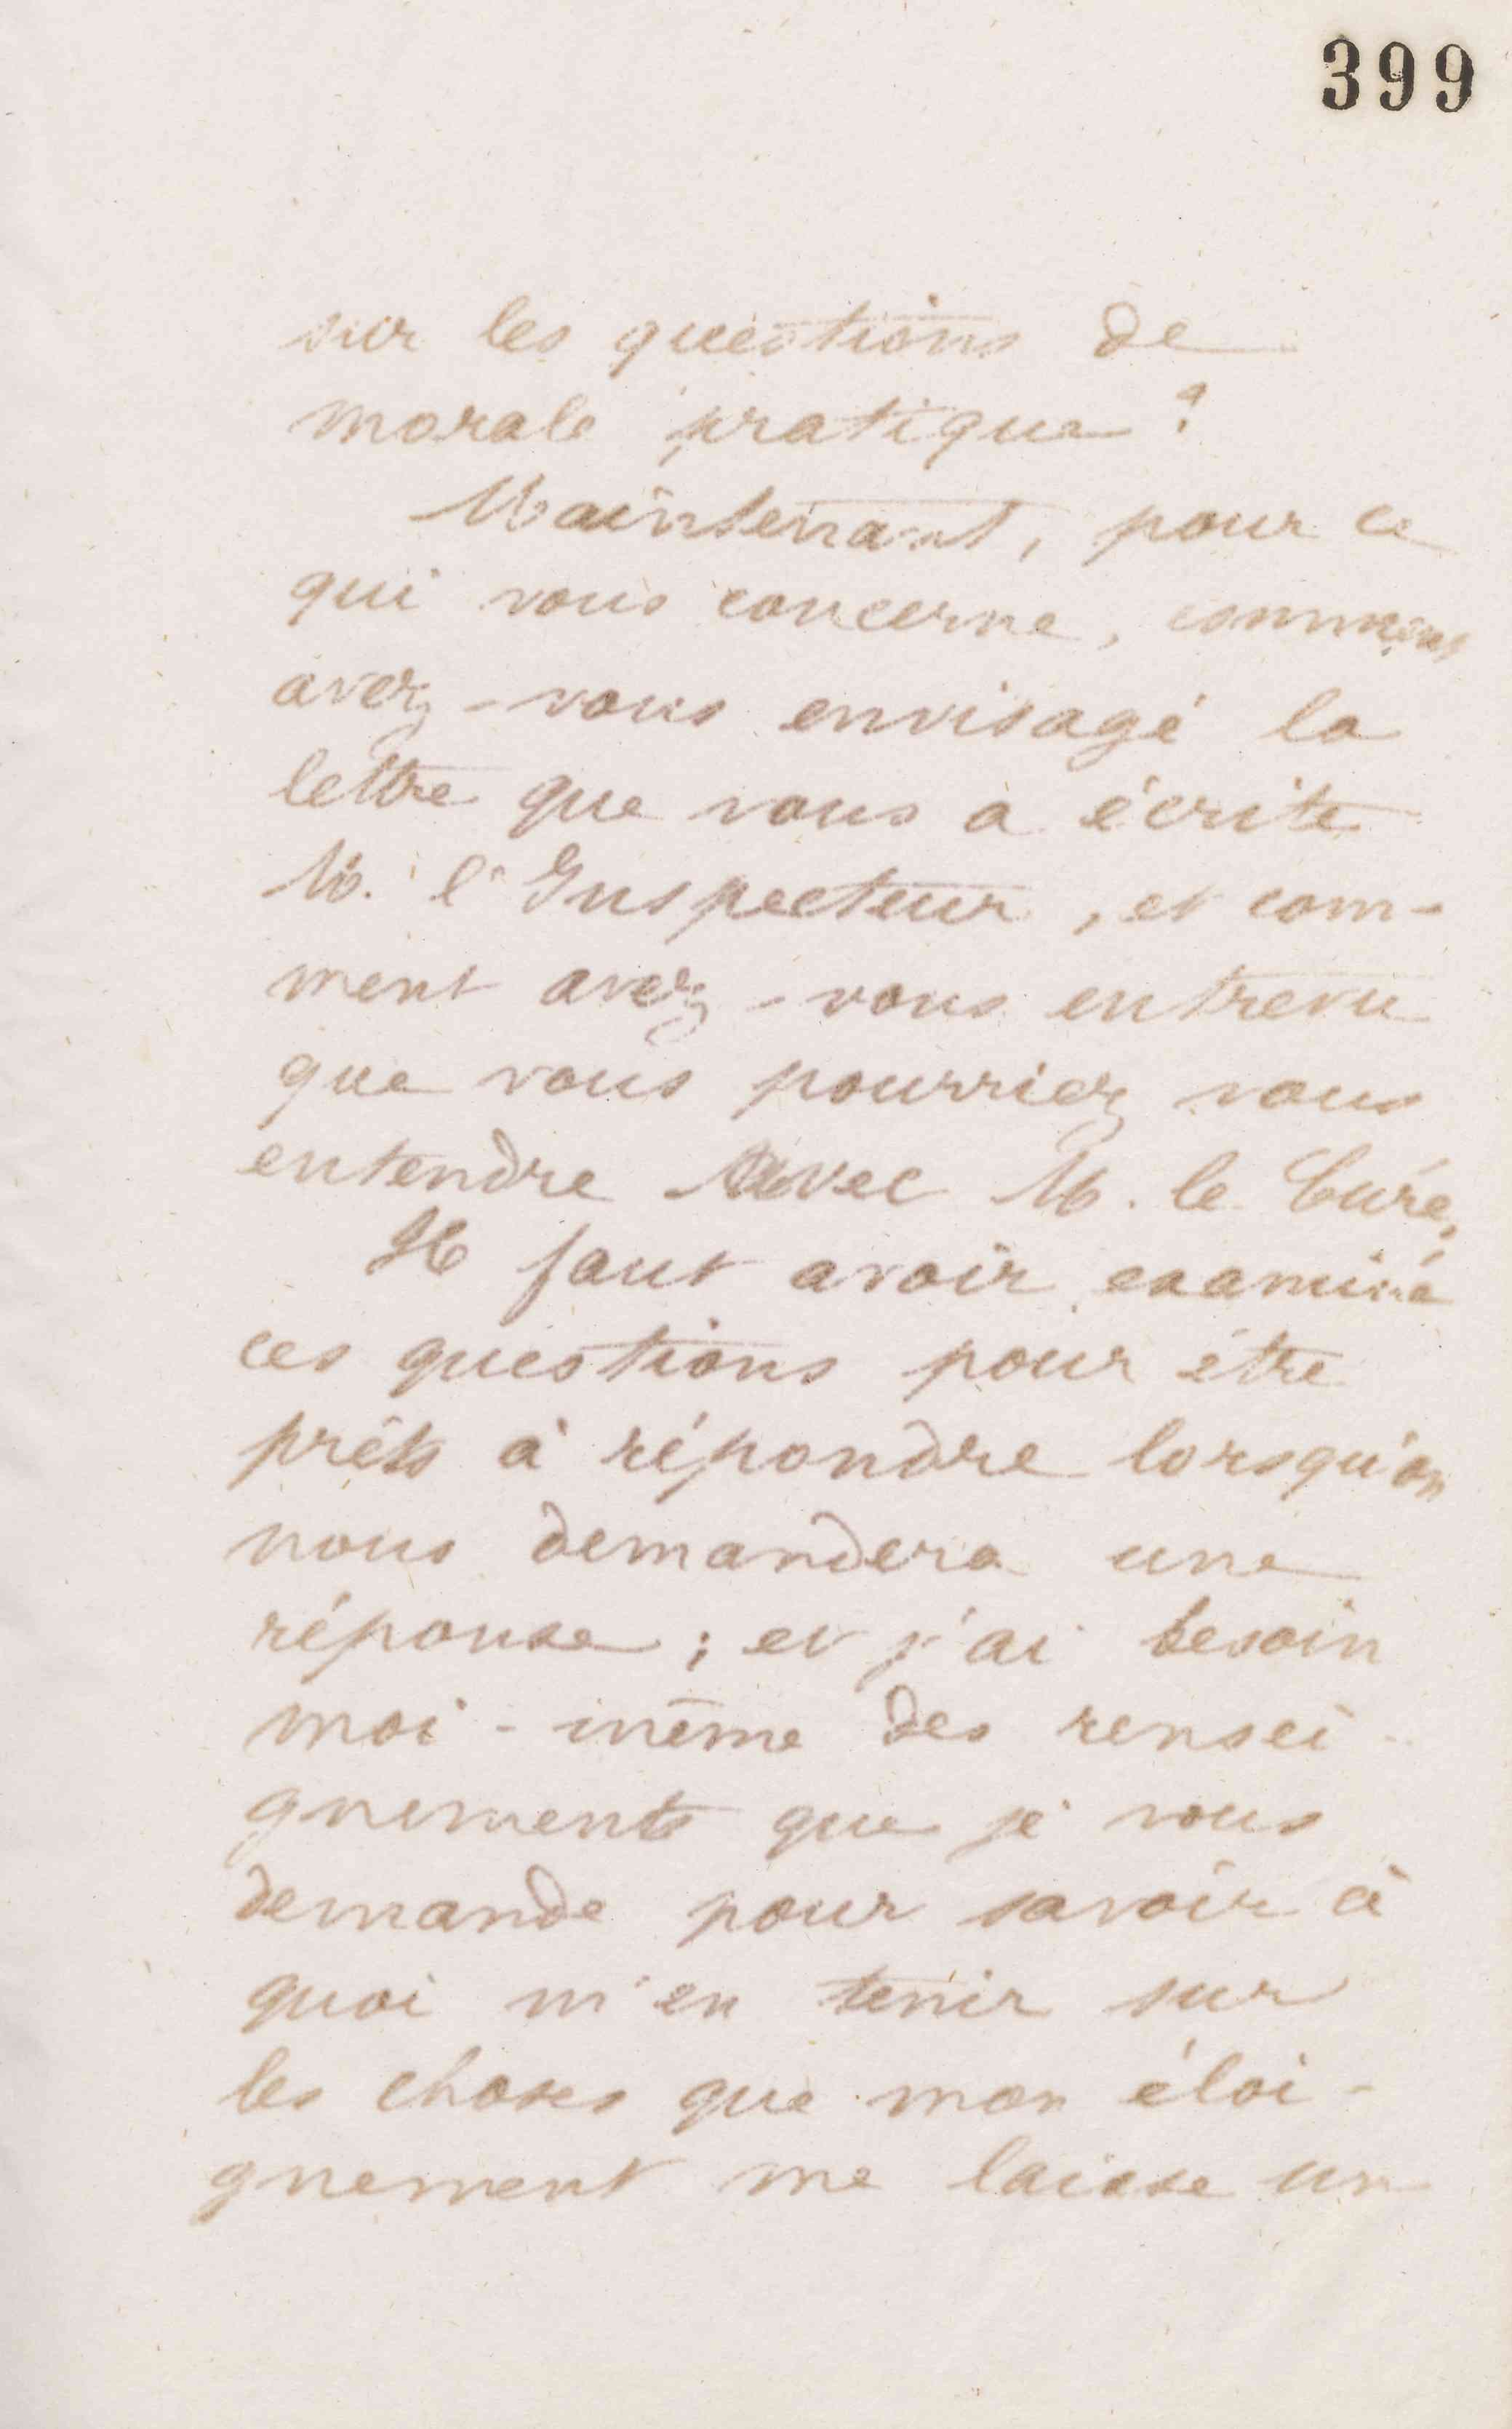 399
sur les questions de
morale pratique ?
Maintenant, pour ce
qui vous concerne, comment
avez-vous envisagé la
lettre que vous a écrite
M. l'Inspecteur, et com-
ment avez-vous entrevu
que vous pourriez vous
entendre avec M. le Curé,
Il faut avoir examiné
ces questions pour être
prêts à répondre lorsqu'on
nous demandera une
réponse ; et j'ai besoin
moi-même des rensei-
gnements que je vous
demande pour savoir à
quoi m'en tenir sur
les choses que mon éloi-
gnement me laisse un